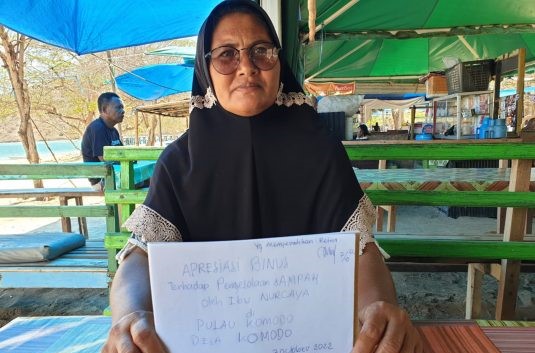 Yg menyerahkan Retno
APRESIASI BINUS
Terhadap Pengelolaan SAMPAH
oleh Ibu NURCAYA
di
PULAU KOMODO
DESA KOMODO
Oktober 2022